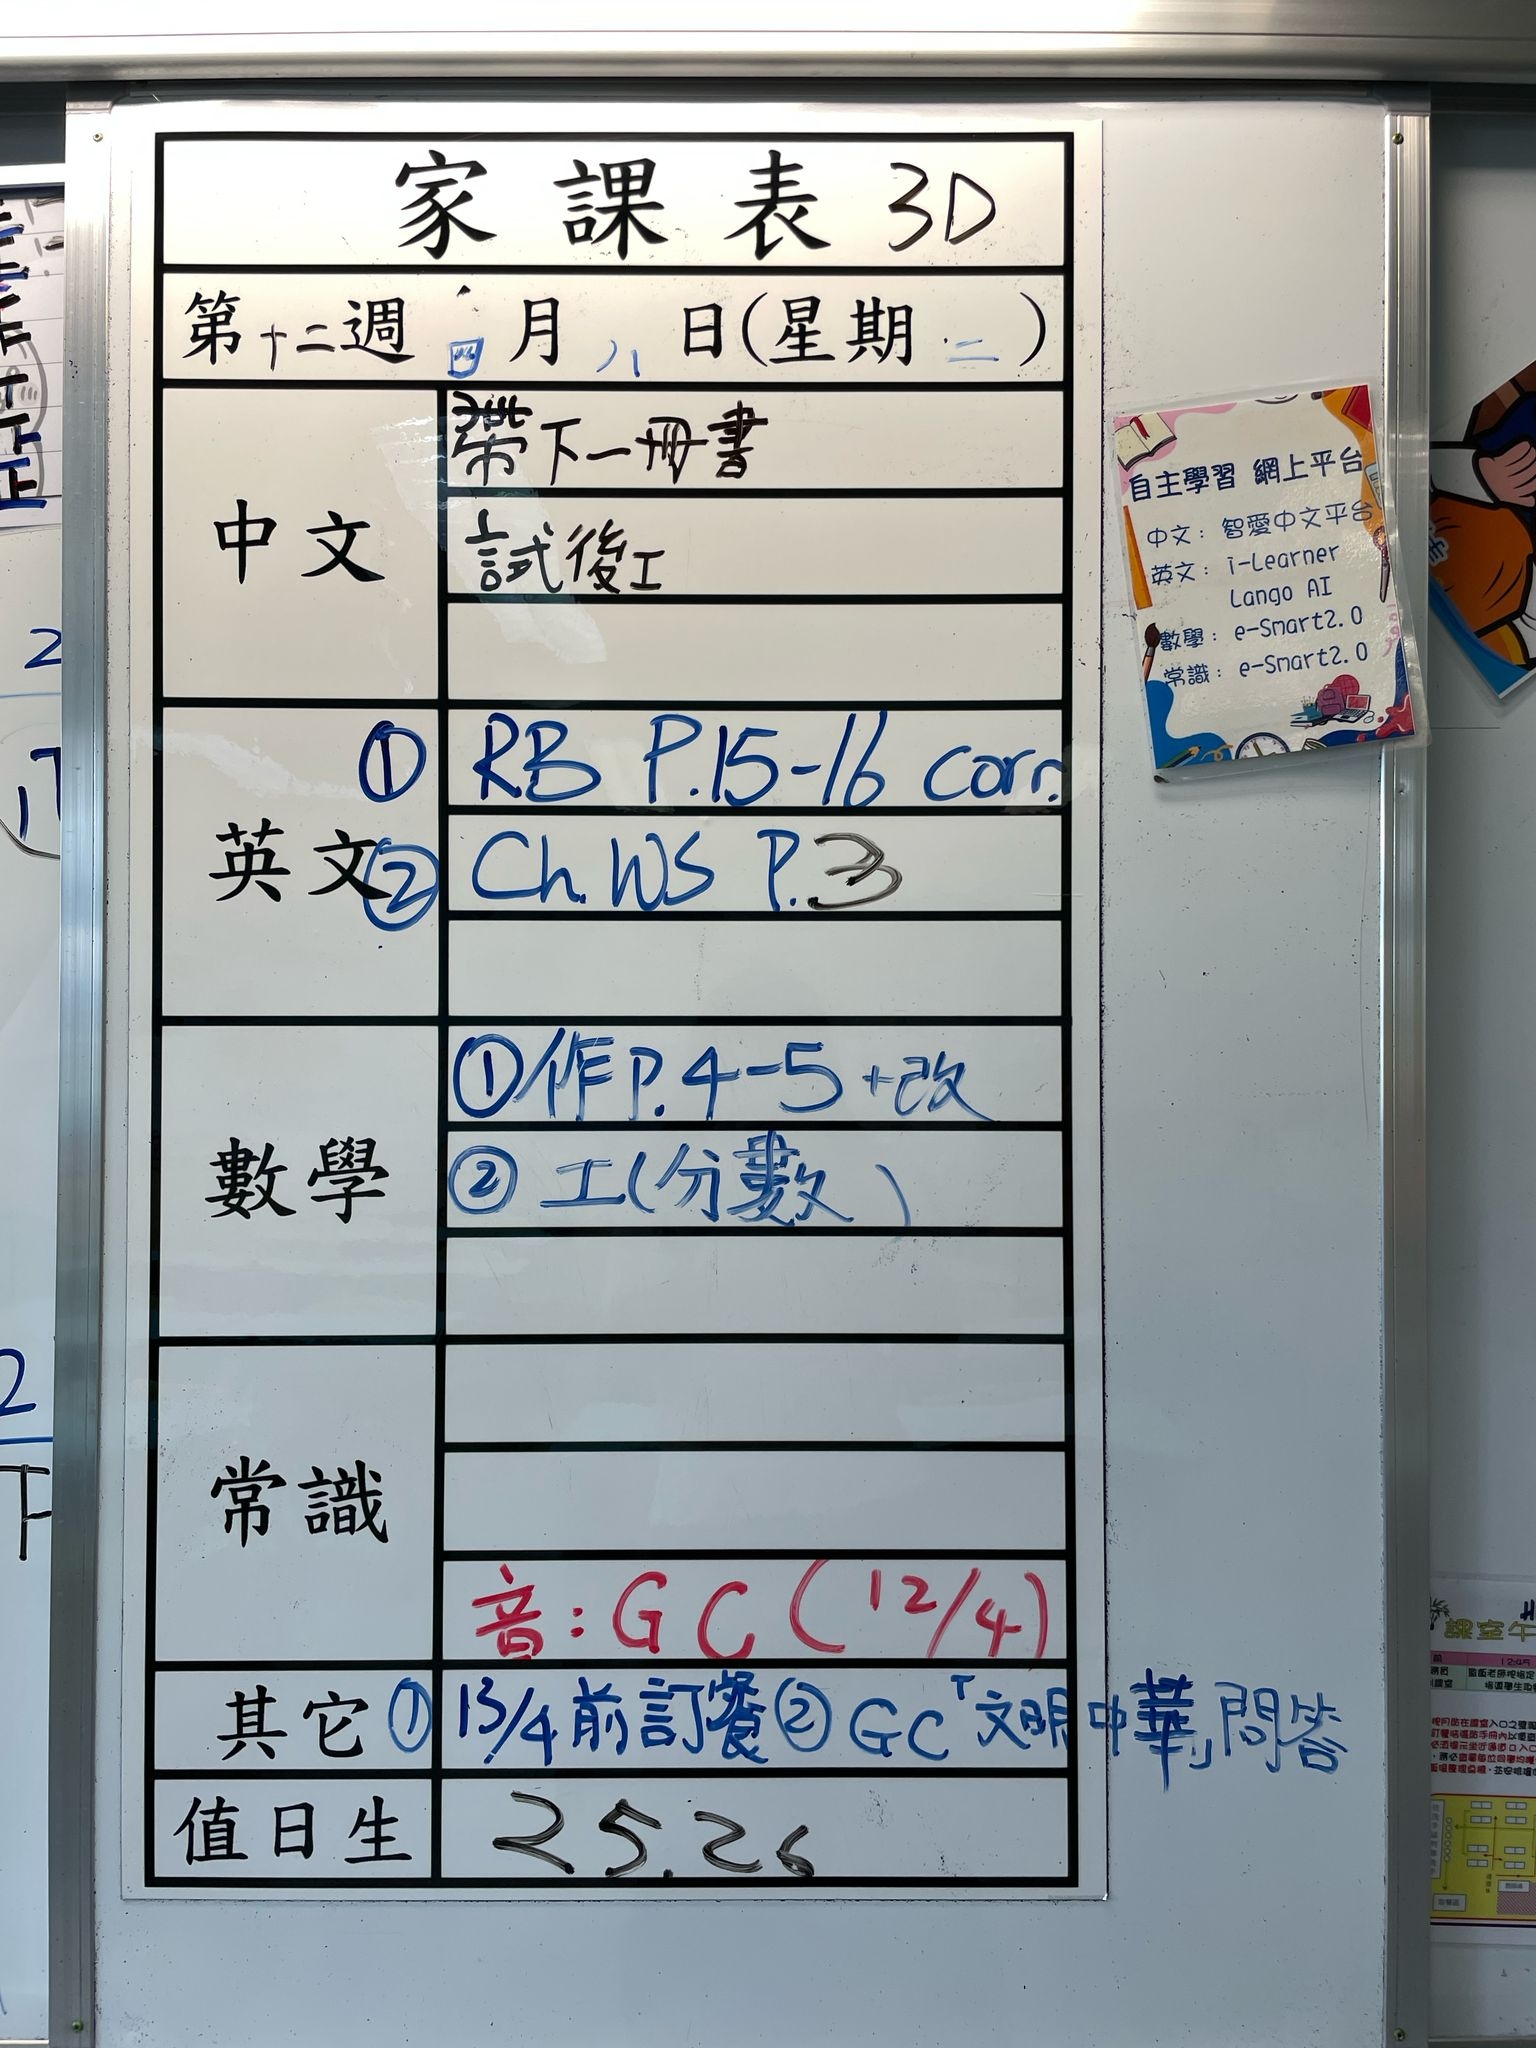 家課表 3D
第十二週 四月八日(星期二)
中文
帶下一冊書
試後工
英文
① RB P.15-16 corr.
② Ch. WS P.3
數學
① 作P.4-5+改
② 工(分數)
常識
音:GC(12/4)
其它
① 13/4前訂餐 ② GC「文明中華」問答
值日生
25.26
自主學習 網上平台
中文:智愛中文平台
英文:i-Learner
Lango AI
數學:e-Smart2.0
常識:e-Smart2.0
課室午